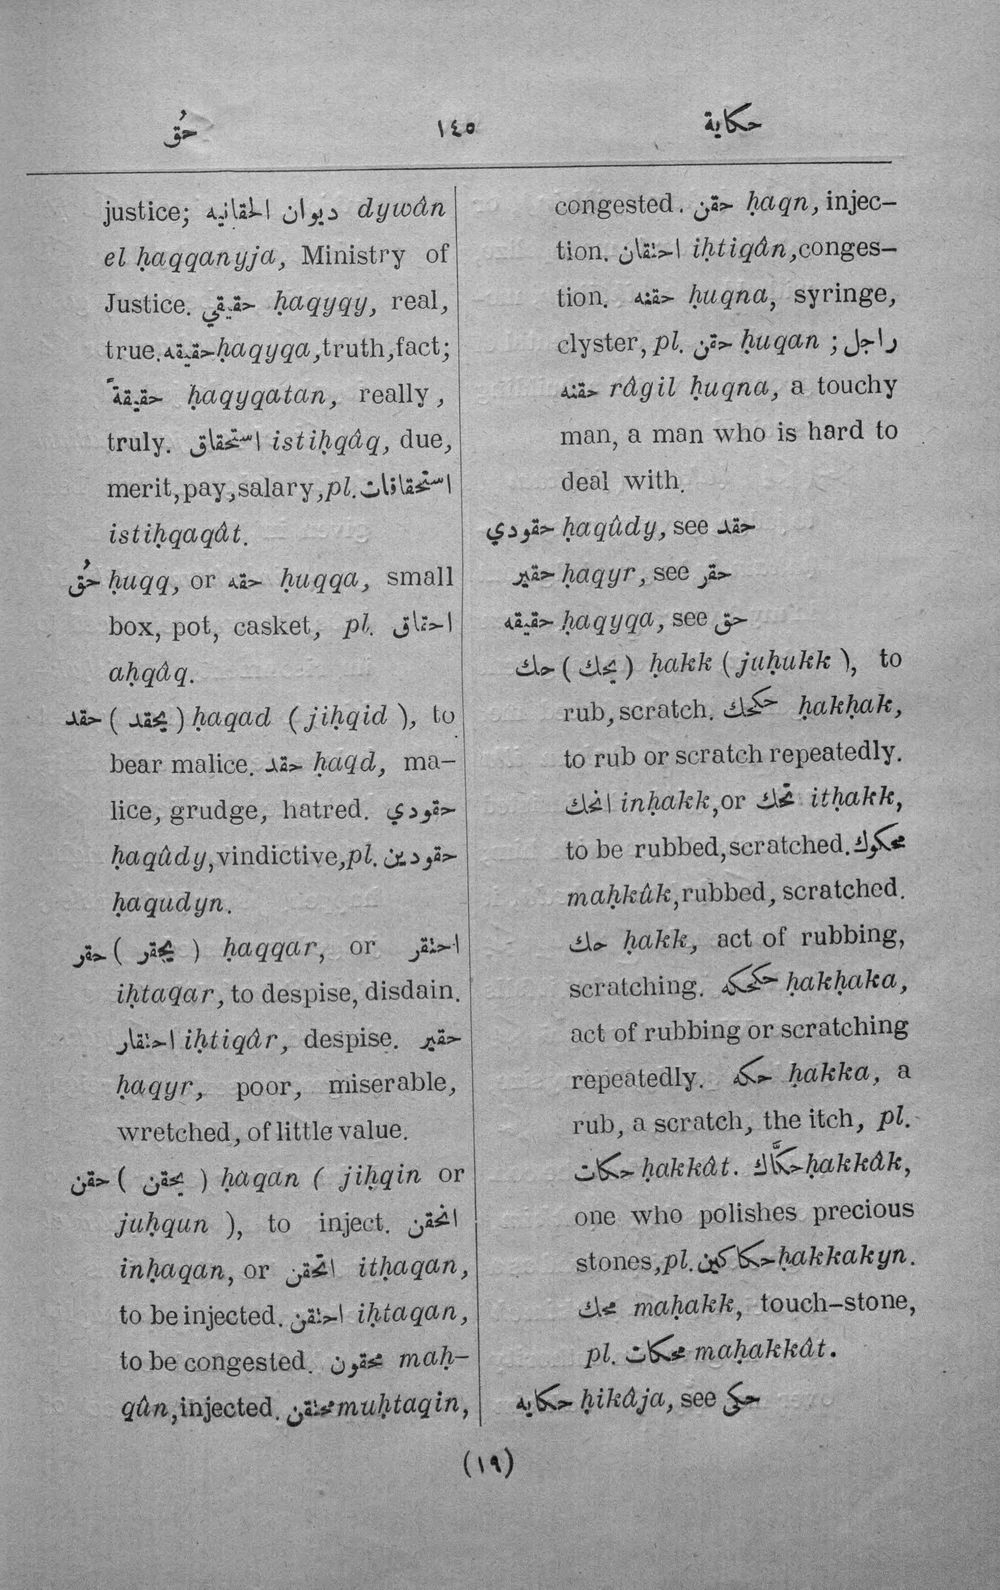 حُق ١٤٥ حكاية
justice; ديوان الحقانيه dywân
el ḥaqqanyja, Ministry of
Justice. حقيقي ḥaqyqy, real,
true. حقيقه ḥaqyqa, truth, fact;
حقيقةً ḥaqyqatan, really,
truly. استحقاق istiḥqâq, due,
merit, pay, salary, pl. استحقاقات
istiḥqaqât.
حُق ḥuqq, or حقه ḥuqqa, small
box, pot, casket, pl. احقاق
aḥqâq.
حقد (يحقد) ḥaqad (jiḥqid), to
bear malice. حقد ḥaqd, ma-
lice, grudge, hatred. حقودي
ḥaqûdy, vindictive, pl. حقودين
ḥaqudyn.
حقر (يحقر) ḥaqqar, or احتقر
iḥtaqar, to despise, disdain.
احتقار iḥtiqâr, despise. حقير
ḥaqyr, poor, miserable,
wretched, of little value.
حقن (يحقن) ḥaqan (jiḥqin or
juḥqun), to inject. انحقن
inḥaqan, or اتحقن itḥaqan,
to be injected. احتقن iḥtaqan,
to be congested. محقون maḥ-
qûn, injected. محتقن muḥtaqin,
congested. حقن ḥaqn, injec-
tion. احتقان iḥtiqân, conges-
tion. حقنه ḥuqna, syringe,
clyster, pl. حقن ḥuqan; راجل
حقنه râgil ḥuqna, a touchy
man, a man who is hard to
deal with.
حقودي ḥaqûdy, see حقد
حقير ḥaqyr, see حقر
حقيقه ḥaqyqa, see حق
حك (يحك) ḥakk (juḥukk), to
rub, scratch. حكحك ḥakḥak,
to rub or scratch repeatedly.
انحك inḥakk, or تحك itḥakk,
to be rubbed, scratched. محكوك
maḥkûk, rubbed, scratched.
حك ḥakk, act of rubbing,
scratching. حكحكه ḥakḥaka,
act of rubbing or scratching
repeatedly. حكه ḥakka, a
rub, a scratch, the itch, pl.
حكات ḥakkât. حكَّاك ḥakkâk,
one who polishes precious
stones, pl. حكاكين ḥakkakyn.
محك maḥakk, touch-stone,
pl. محكات maḥakkât.
حكايه ḥikâja, see حكى
(١٩)